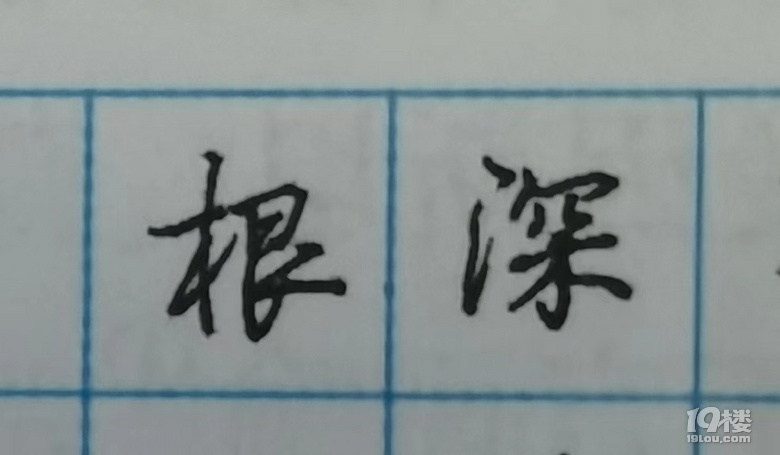 根深
19楼
19lou.com